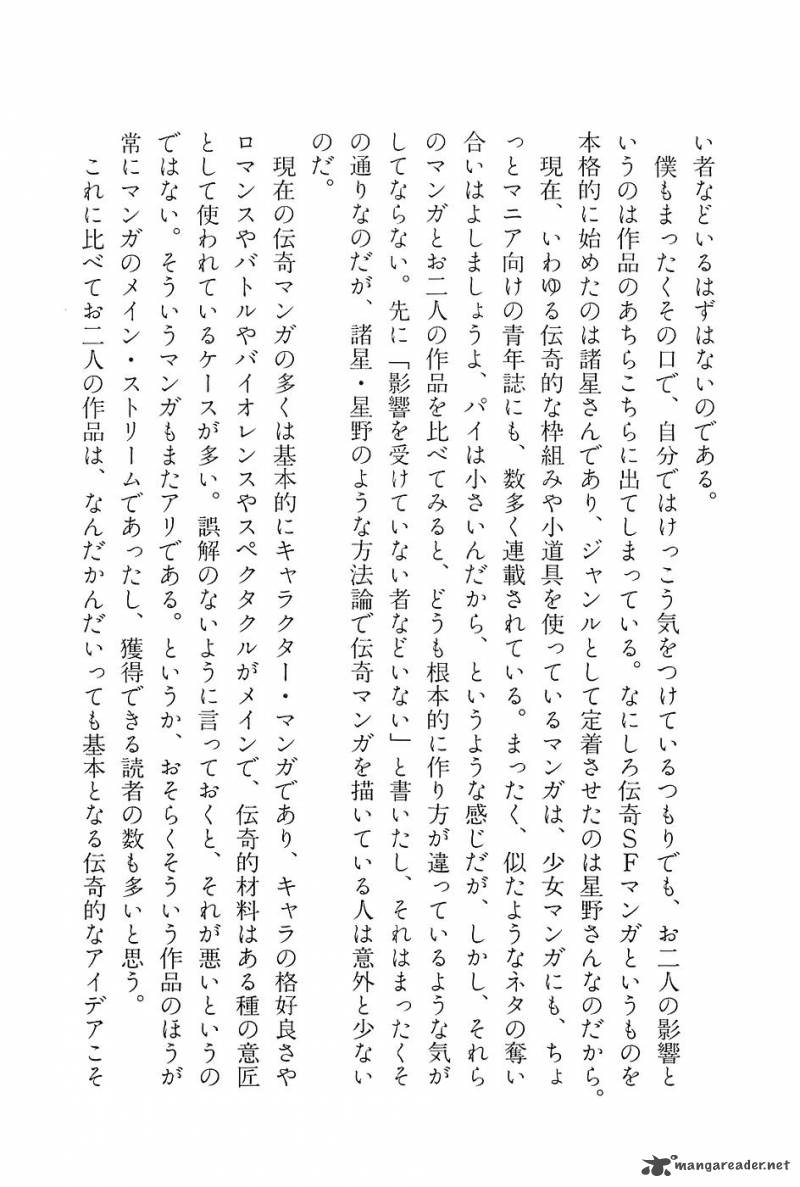 い者などいるはずはないのである。
　僕もまったくその口で、自分ではけっこう気をつけているつもりでも、お二人の影響と
いうのは作品のあちらこちらに出てしまっている。なにしろ伝奇ＳＦマンガというものを
本格的に始めたのは諸星さんであり、ジャンルとして定着させたのは星野さんなのだから。
　現在、いわゆる伝奇的な枠組みや小道具を使っているマンガは、少女マンガにも、ちょ
っとマニア向けの青年誌にも、数多く連載されている。まったく、似たようなネタの奪い
合いはよしましょうよ、パイは小さいんだから、というような感じだが、しかし、それら
のマンガとお二人の作品を比べてみると、どうも根本的に作り方が違っているような気が
してならない。先に「影響を受けていない者などいない」と書いたし、それはまったくそ
の通りなのだが、諸星・星野のような方法論で伝奇マンガを描いている人は意外と少ない
のだ。
　現在の伝奇マンガの多くは基本的にキャラクター・マンガであり、キャラの格好良さや
ロマンスやバトルやバイオレンスやスペクタクルがメインで、伝奇的材料はある種の意匠
として使われているケースが多い。誤解のないように言っておくと、それが悪いというの
ではない。そういうマンガもまたアリである。というか、おそらくそういう作品のほうが
常にマンガのメイン・ストリームであったし、獲得できる読者の数も多いと思う。
　これに比べてお二人の作品は、なんだかんだいっても基本となる伝奇的なアイデアこそ
mangareader.net